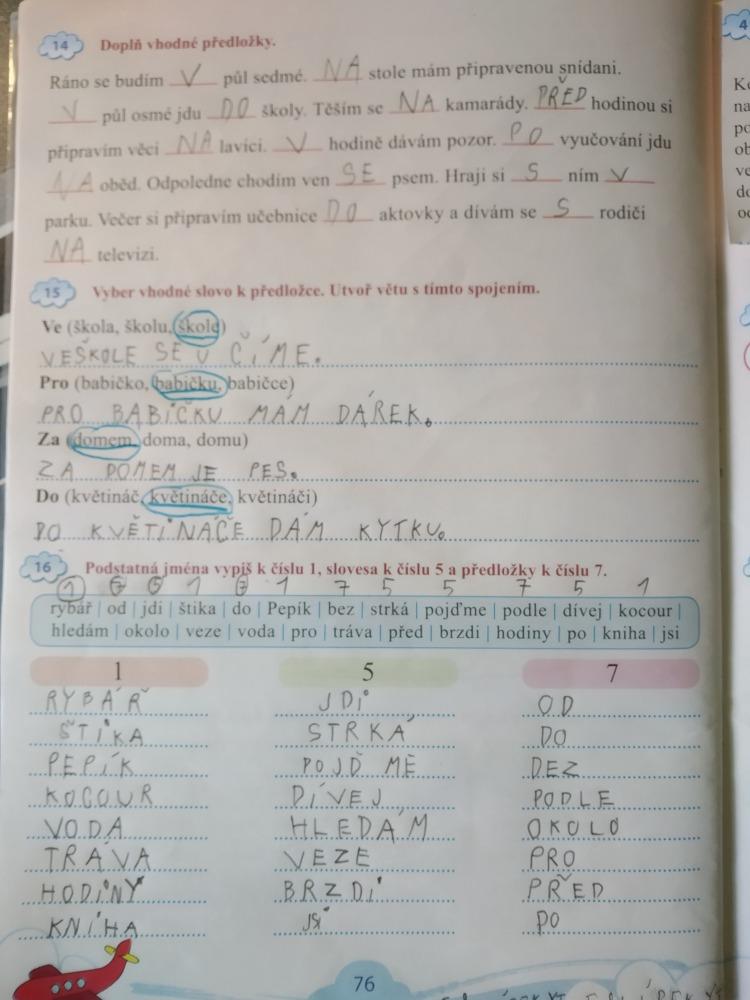 14 Doplň vhodné předložky.
Ráno se budím V půl sedmé. NA stole mám připravenou snídani.
V půl osmé jdu DO školy. Těším se NA kamarády. PŘED hodinou si
připravím věci NA lavici. V hodině dávám pozor. PO vyučování jdu
NA oběd. Odpoledne chodím ven SE psem. Hraji si S ním V
parku. Večer si připravím učebnice DO aktovky a dívám se S rodiči
NA televizi.
15 Vyber vhodné slovo k předložce. Utvoř větu s tímto spojením.
Ve (škola, školu, škole)
VE ŠKOLE SE UČÍME.
Pro (babičko, babičku, babičce)
PRO BABIČKU MÁM DÁREK.
Za (domem, doma, domu)
ZA DOMEM JE PES.
Do (květináč, květináče, květináči)
DO KVĚTINÁČE DÁM KYTKU.
16 Podstatná jména vypiš k číslu 1, slovesa k číslu 5 a předložky k číslu 7.
1 1 1 7 5 5 7 5 1
rybář | od | jdi | štika | do | Pepík | bez | strká | pojďme | podle | dívej | kocour |
hledám | okolo | veze | voda | pro | tráva | před | brzdi | hodiny | po | kniha | jsi
1 5 7
RYBÁŘ JDI OD
ŠTIKA STRKÁ DO
PEPÍK POJĎ MĚ DEZ
KOCOUR DÍVEJ PODLE
VODA HLEDÁM OKOLO
TRÁVA VEZE PRO
HODINY BRZDI PŘED
KNIHA JSI PO
76
4